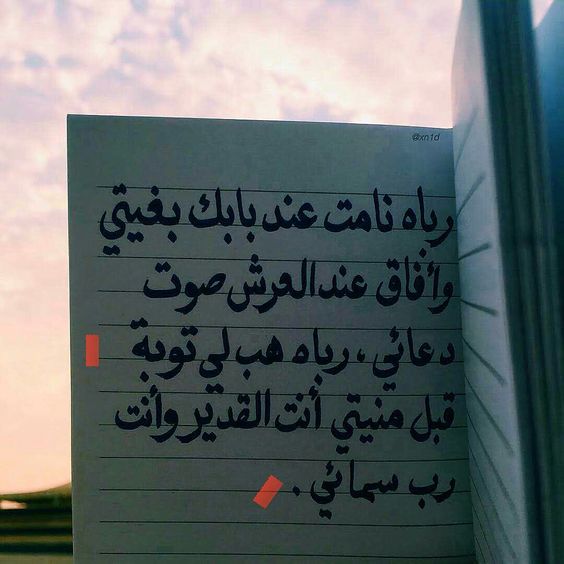 @xn1d
رباه نامت عند بابك بغيتي
وأفاق عند العرش صوت
دعائي ، رباه هب لي توبة
قبل منيتي أنت القدير وأنت
رب سمائي .